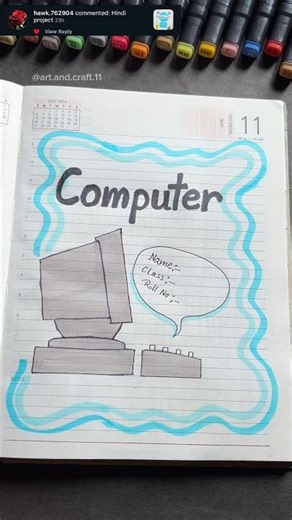 hawk.762904 commented: Hindi
project 23h
View Reply
@art.and.craft.11
11
Computer
Name;-
Class;-
Roll No;-